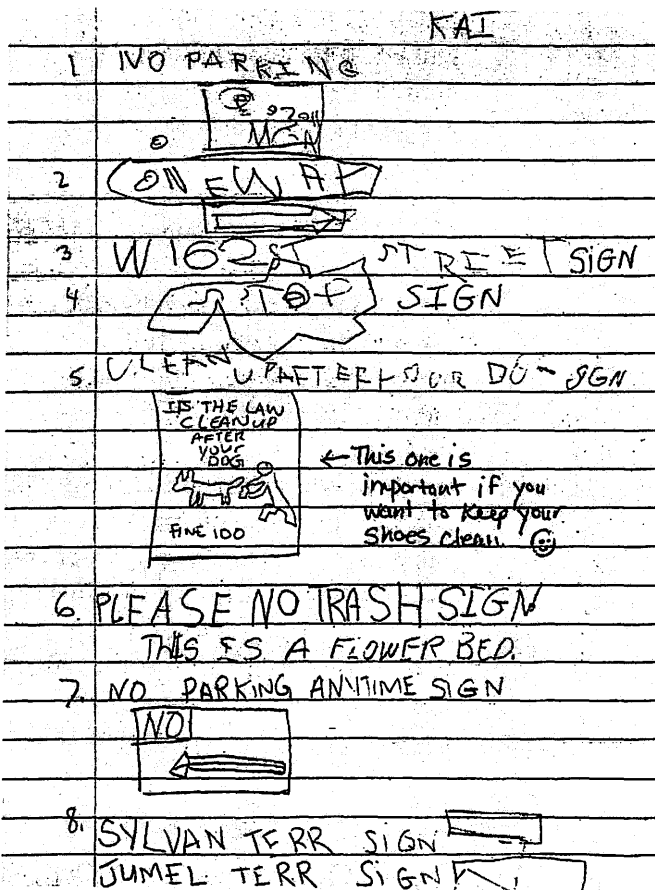 KAI
1 NO PARKING
2 ONE WAY
3 W 162 ST STREET SIGN
4 STOP SIGN
5. CLEAN UP AFTER YOUR DO SIGN
IT'S THE LAW
CLEAN UP
AFTER
YOUR
DOG
FINE 100
← This one is
important if you
want to keep your
shoes clean.
6. PLEASE NO TRASH SIGN
THIS IS A FLOWER BED.
7. NO PARKING ANYTIME SIGN
NO
8. SYLVAN TERR SIGN
JUMEL TERR SIGN